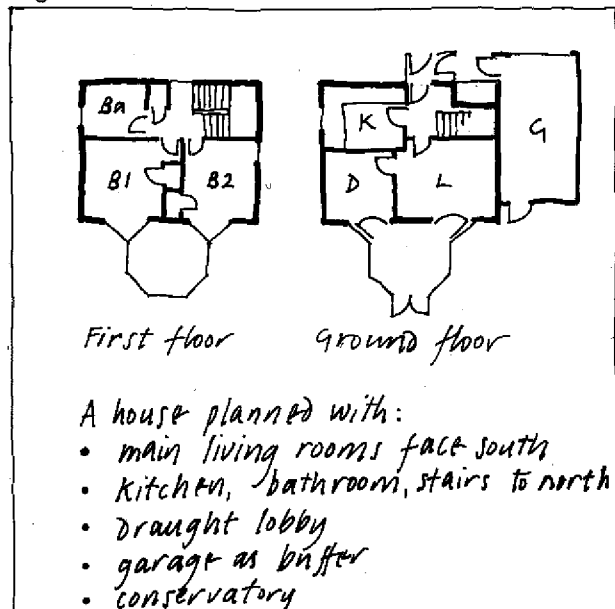 Ba
B1
B2
K
G
D
L
First floor
Ground floor
A house planned with:
• main living rooms face south
• kitchen, bathroom, stairs to north
• Draught lobby
• garage as buffer
• conservatory